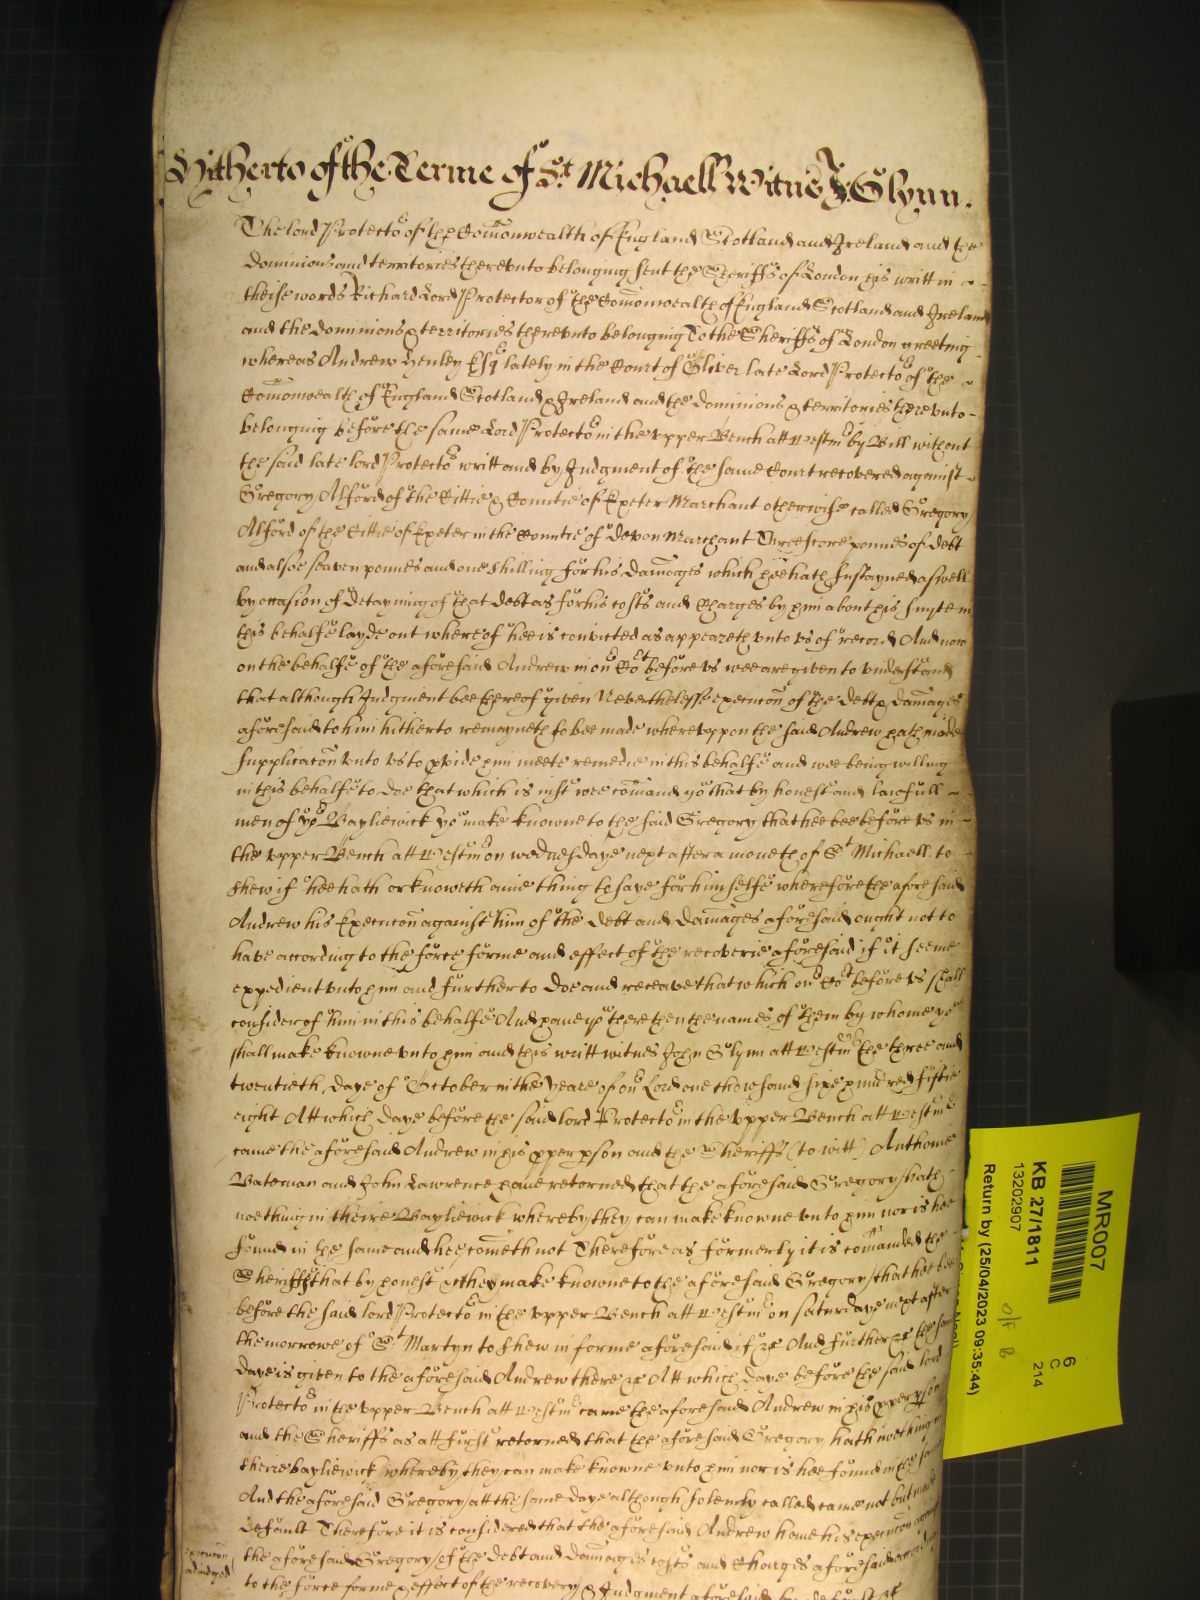 Hitherto of the Terme of St Michaell Witnes J. Glynn.
The lord Protector of the Comonwealth of England Scotland and Ireland and the
dominions and territories therevnto belonging sent the Sheriffs of London his writt in
theise words Richard Lord Protector of the Comonwealth of England Scotland and Ireland
and the dominions & territories therevnto belonging To the Sheriffs of London greeting
whereas Andrew Henley Esq lately in the Court of Oliver late Lord Protector of the
Comonwealth of England Scotland & Ireland and the dominions & territories therevnto
belonging before the same Lord Protector in the vpper Bench att Westmr by Bill without
the said late lord Protectors writt and by Judgment of the same Court recovered against
Gregory Alford of the Cittie & Countie of Exeter Marchant otherwise called Gregory
Alford of the Cittie of Exeter in the Countie of Devon Marchant Threescore pounes of debt
and alsoe seaven pounes and one shilling for his damages which hee hath susteyned aswell
by occasion of detayning of that debt as for his costs and Charges by him about his suyte in
this behalfe layde out whereof hee is convicted as appeareth vnto vs of record And now
on the behalfe of the aforesaid Andrew in our Cort before vs wee are given to vnderstand
that although Judgment bee thereof given Neverthelesse execucon of the debt & damages
aforesaid to him hitherto remayneth to bee made wherevppon the said Andrew hath made
supplicacon vnto vs to pvide him meete remedie in this behalfe and wee being willing
in this behalfe to doe that which is iust wee comand yo that by honest and lawfull
men of yor Bayliewick yo make knowne to the said Gregory that hee bee before vs in
the vpper Bench att Westmr on wednesdaye next after a moneth of St Michaell to
shew if hee hath or knoweth anie thing to saye for himselfe wherefore the aforesaid
Andrew his Execucon against him of the debt and damages aforesaid ought not to
have according to the force forme and effect of the recoverie aforesaid if it seeme
expedient vnto him and further to doe and receave that which our Cort before vs shall
consider of him in this behalfe And haue yo there then the names of them by whome yo
shall make knowne vnto him and this writt witnes John Glynn att Westmr the three and
twentieth daye of October in the yeare of our Lord one thowsand sixe hundred fiftie
eight Att which daye before the said lord Protector in the vpper Bench att Westmr
came the aforesaid Andrew in his pper pson and the Sheriffs (to witt) Anthonie
Bateman and John Lawrence haue retorned that the aforesaid Gregory hath
noething in theire Bayliewick whereby they can make knowne vnto him nor is hee
found in the same and hee cometh not Therefore as formerly it is comanded the
Sheriffs that by honest &c they make knowne to the aforesaid Gregory that hee bee
before the said lord Protector in the vpper Bench att Westmr on saturdaye next after
the morrowe of St Martyn to shew in forme aforesaid if &c And further &c the same
daye is given to the aforesaid Andrew there &c Att which daye before the said lord
Protector in the vpper Bench att Westmr came the aforesaid Andrew in his pper pson
and the Sheriffs as att first retorned that the aforesaid Gregory hath noething in
theire bayliewick whereby they can make knowne vnto him nor is hee found in the same
And the aforesaid Gregory att the same daye although solemly called came not but made
default Therefore it is considered that the aforesaid Andrew haue his execucon against
execucon
adiudged
the aforesaid Gregory of the debt and damages costs and Charges aforesaid
to the force forme & effect of the recovery & Judgment aforesaid by default &c
MR007
KB 27/1811
13202907
Return by (25/04/2023 09:35:44)
6
C
214
O/F
B